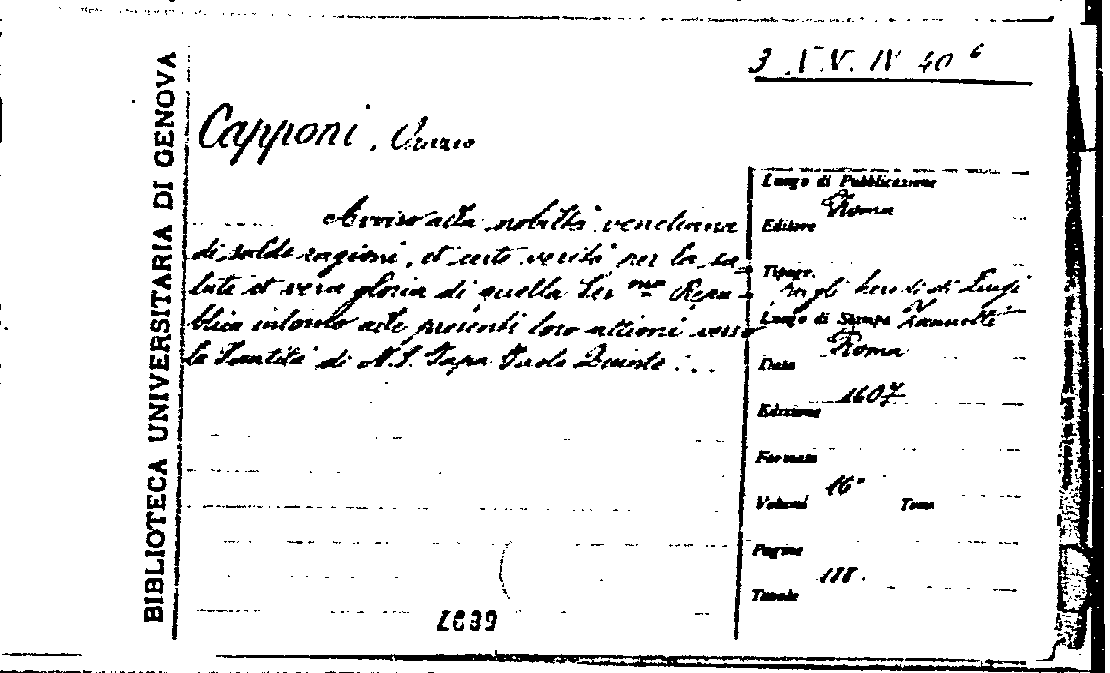 3 N.V. IV 40 6
BIBLIOTECA UNIVERSITARIA DI GENOVA
Capponi, Orazio
Avviso alla nobiltà venetiana
di salde ragioni, et certe verità per la sa-
lute et vera gloria di quella Ser.ma Repu-
blica intorno alle presenti loro attioni verso
la Santità di N.S. Papa Paolo Quinto...
Luogo di Pubblicazione
Roma
Editore
Tipogr.
gli heredi di Luigi
Luogo di Stampa Zannetti
Roma
Data
1607
Edizione
Formato
16°
Volumi Tomi
Pagine
118.
Tavole